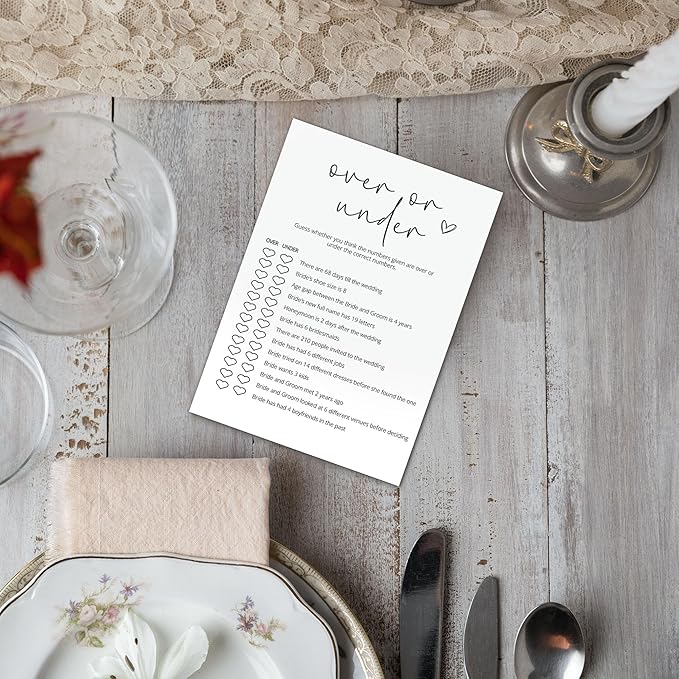 over or
under
Guess whether you think the numbers given are over or
under the correct numbers.
OVER UNDER
There are 68 days till the wedding
Bride's shoe size is 8
Age gap between the Bride and Groom is 4 years
Bride's new full name has 19 letters
Honeymoon is 2 days after the wedding
Bride has 6 bridesmaids
There are 210 people invited to the wedding
Bride has had 6 different jobs
Bride tried on 14 different dresses before she found the one
Bride wants 3 kids
Bride and Groom met 2 years ago
Bride and Groom looked at 6 different venues before deciding
Bride has had 4 boyfriends in the past